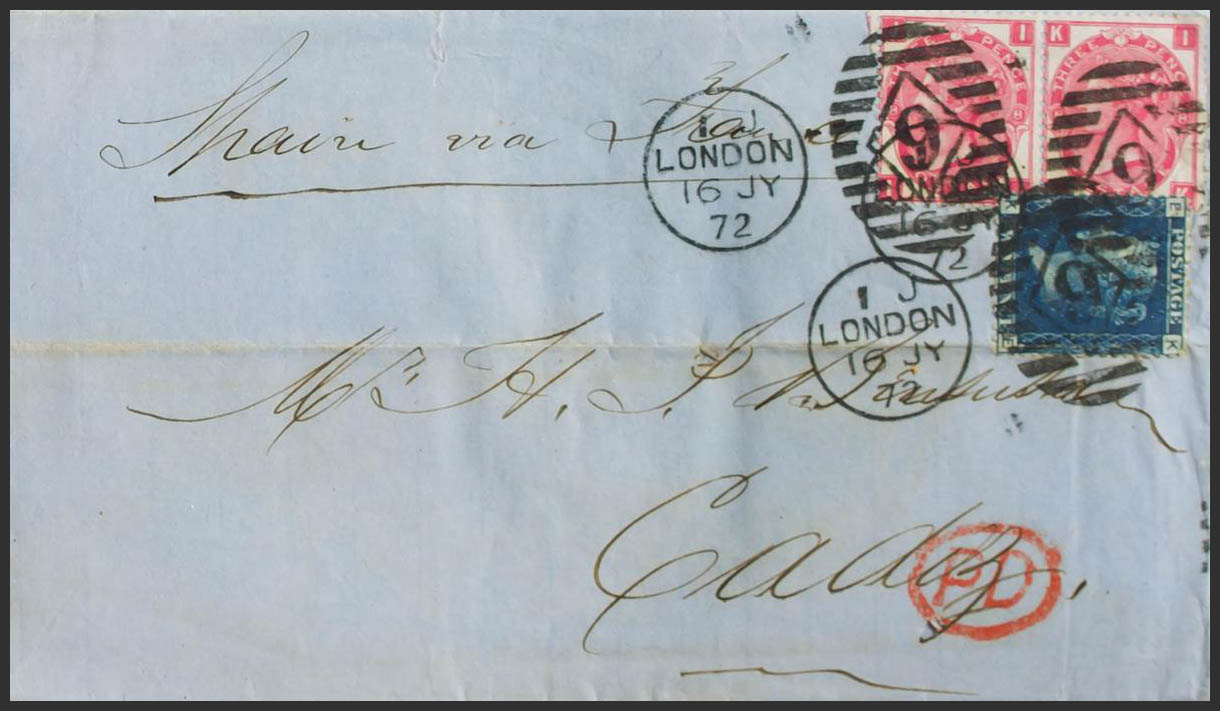 Spain via France
I J
LONDON
16 JY
72
THREE PENCE
I
8
K I
THREE PENCE
8
K
9
9
9
LONDON
16 JY
72
K P
POSTAGE
E K
I J
LONDON
16 JY
72
Mr. H. J.
Cadiz.
PD